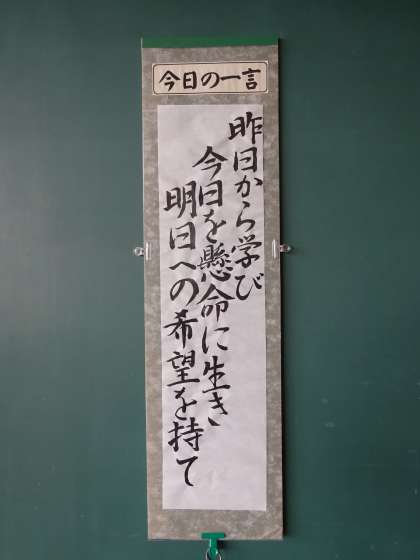 今日の一言
昨日から学び
今日を懸命に生き
明日への希望を持て